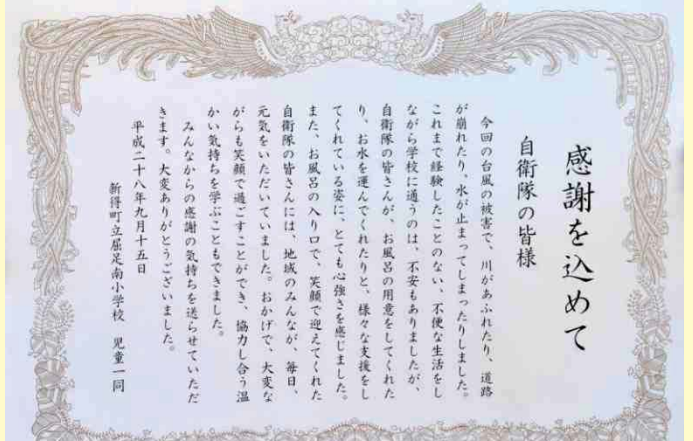 感謝を込めて
自衛隊の皆様
今回の台風の被害で、川があふれたり、道路
が崩れたり、水が止まってしまったりしました。
これまで経験したことのない、不便な生活をし
ながら学校に通うのは、不安もありましたが、
自衛隊の皆さんが、お風呂の用意をしてくれた
り、お水を運んでくれたりと、様々な支援をし
てくれている姿に、とても心強さを感じました。
また、お風呂の入り口で、笑顔で迎えてくれた
自衛隊の皆さんには、地域のみんなが、毎日、
元気をいただいていました。おかげで、大変な
がらも笑顔で過ごすことができ、協力し合う温
かい気持ちを学ぶこともできました。
みんなからの感謝の気持ちを送らせていただ
きます。大変ありがとうございました。
平成二十八年九月十五日
新得町立屈足南小学校 児童一同